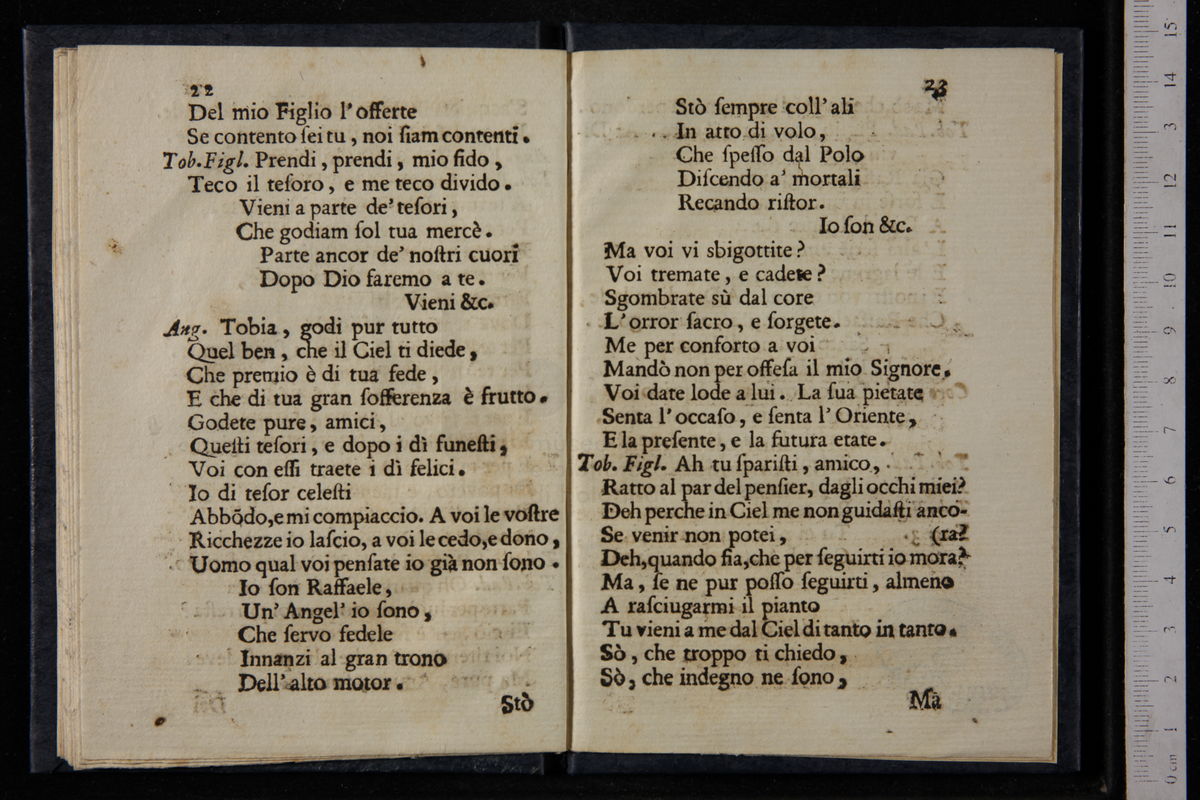 22
Del mio Figlio l'offerte
Se contento ſei tu, noi ſiam contenti.
Tob. Figl. Prendi, prendi, mio fido,
Teco il teſoro, e me teco divido.
Vieni a parte de' teſori,
Che godiam ſol tua mercè.
Parte ancor de' noſtri cuori
Dopo Dio faremo a te.
Vieni &c.
Ang. Tobia, godi pur tutto
Quel ben, che il Ciel ti diede,
Che premio è di tua fede,
E che di tua gran ſofferenza è frutto.
Godete pure, amici,
Queſti teſori, e dopo i dì funeſti,
Voi con eſſi traete i dì felici.
Io di teſor celeſti
Abbōdo, e mi compiaccio. A voi le voſtre
Ricchezze io laſcio, a voi le cedo, e dono,
Uomo qual voi penſate io già non ſono.
Io ſon Raffaele,
Un' Angel' io ſono,
Che ſervo fedele
Innanzi al gran trono
Dell'alto motor.
Stò
23
Stò ſempre coll' ali
In atto di volo,
Che ſpeſſo dal Polo
Diſcendo a' mortali
Recando riſtor.
Io ſon &c.
Ma voi vi sbigottite?
Voi tremate, e cadete?
Sgombrate sù dal core
L'orror ſacro, e ſorgete.
Me per conforto a voi
Mandò non per offeſa il mio Signore.
Voi date lode a lui. La ſua pietate
Senta l'occaſo, e ſenta l' Oriente,
E la preſente, e la futura etate.
Tob. Figl. Ah tu ſpariſti, amico,
Ratto al par del penſier, dagli occhi miei?
Deh perche in Ciel me non guidaſti anco-
Se venir non potei, (ra?
Deh, quando fia, che per ſeguirti io mora?
Ma, ſe ne pur poſſo ſeguirti, almeno
A raſciugarmi il pianto
Tu vieni a me dal Ciel di tanto in tanto.
Sò, che troppo ti chiedo,
Sò, che indegno ne ſono,
Ma
0 cm 1 2 3 4 5 6 7 8 9 10 11 12 13 14 15